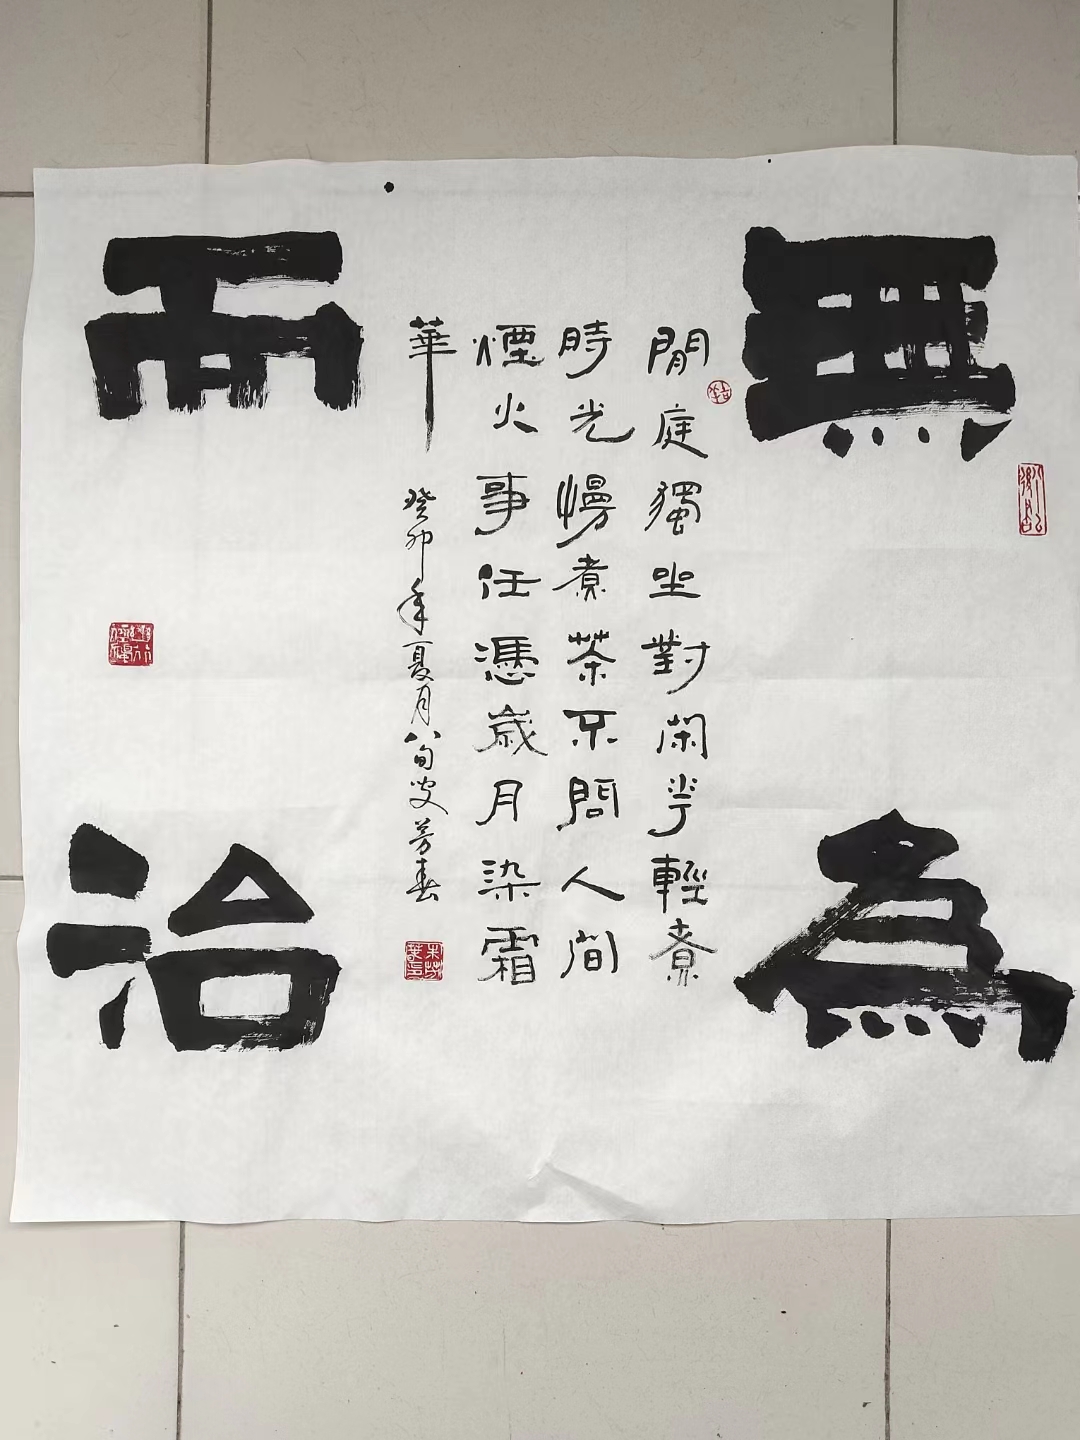 無為
而治
閒庭獨坐對閑花輕煮
時光慢煮茶不問人間
煙火事任憑歲月染霜
華
癸卯年夏月八旬叟芳春